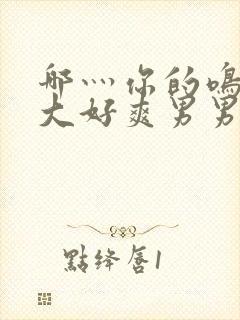 那灬你的鳴
大好爽男男
點绛唇1